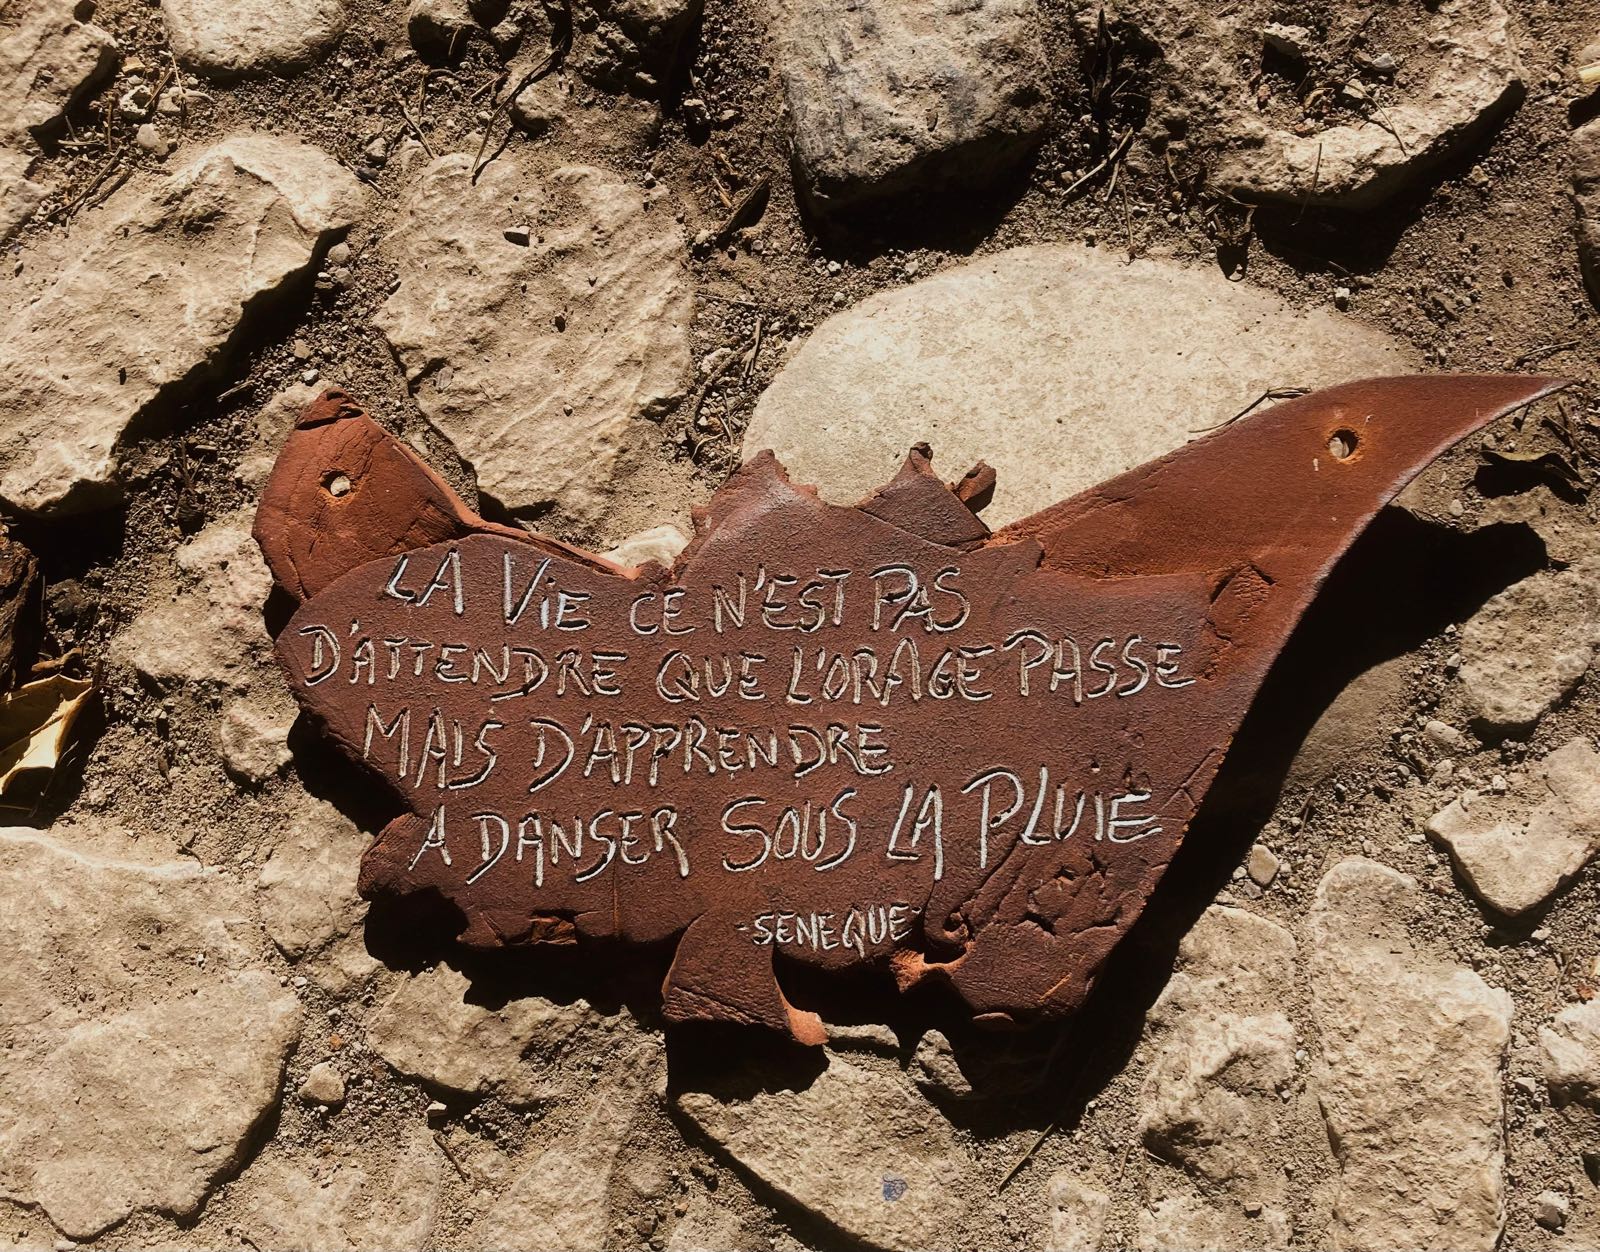 LA ViE CE N'EST PAS
D'ATTENDRE QUE L'ORAGE PASSE
MAIS D'APPRENDRE
A DANSER SOUS LA PLUiE
-SENEQUE-